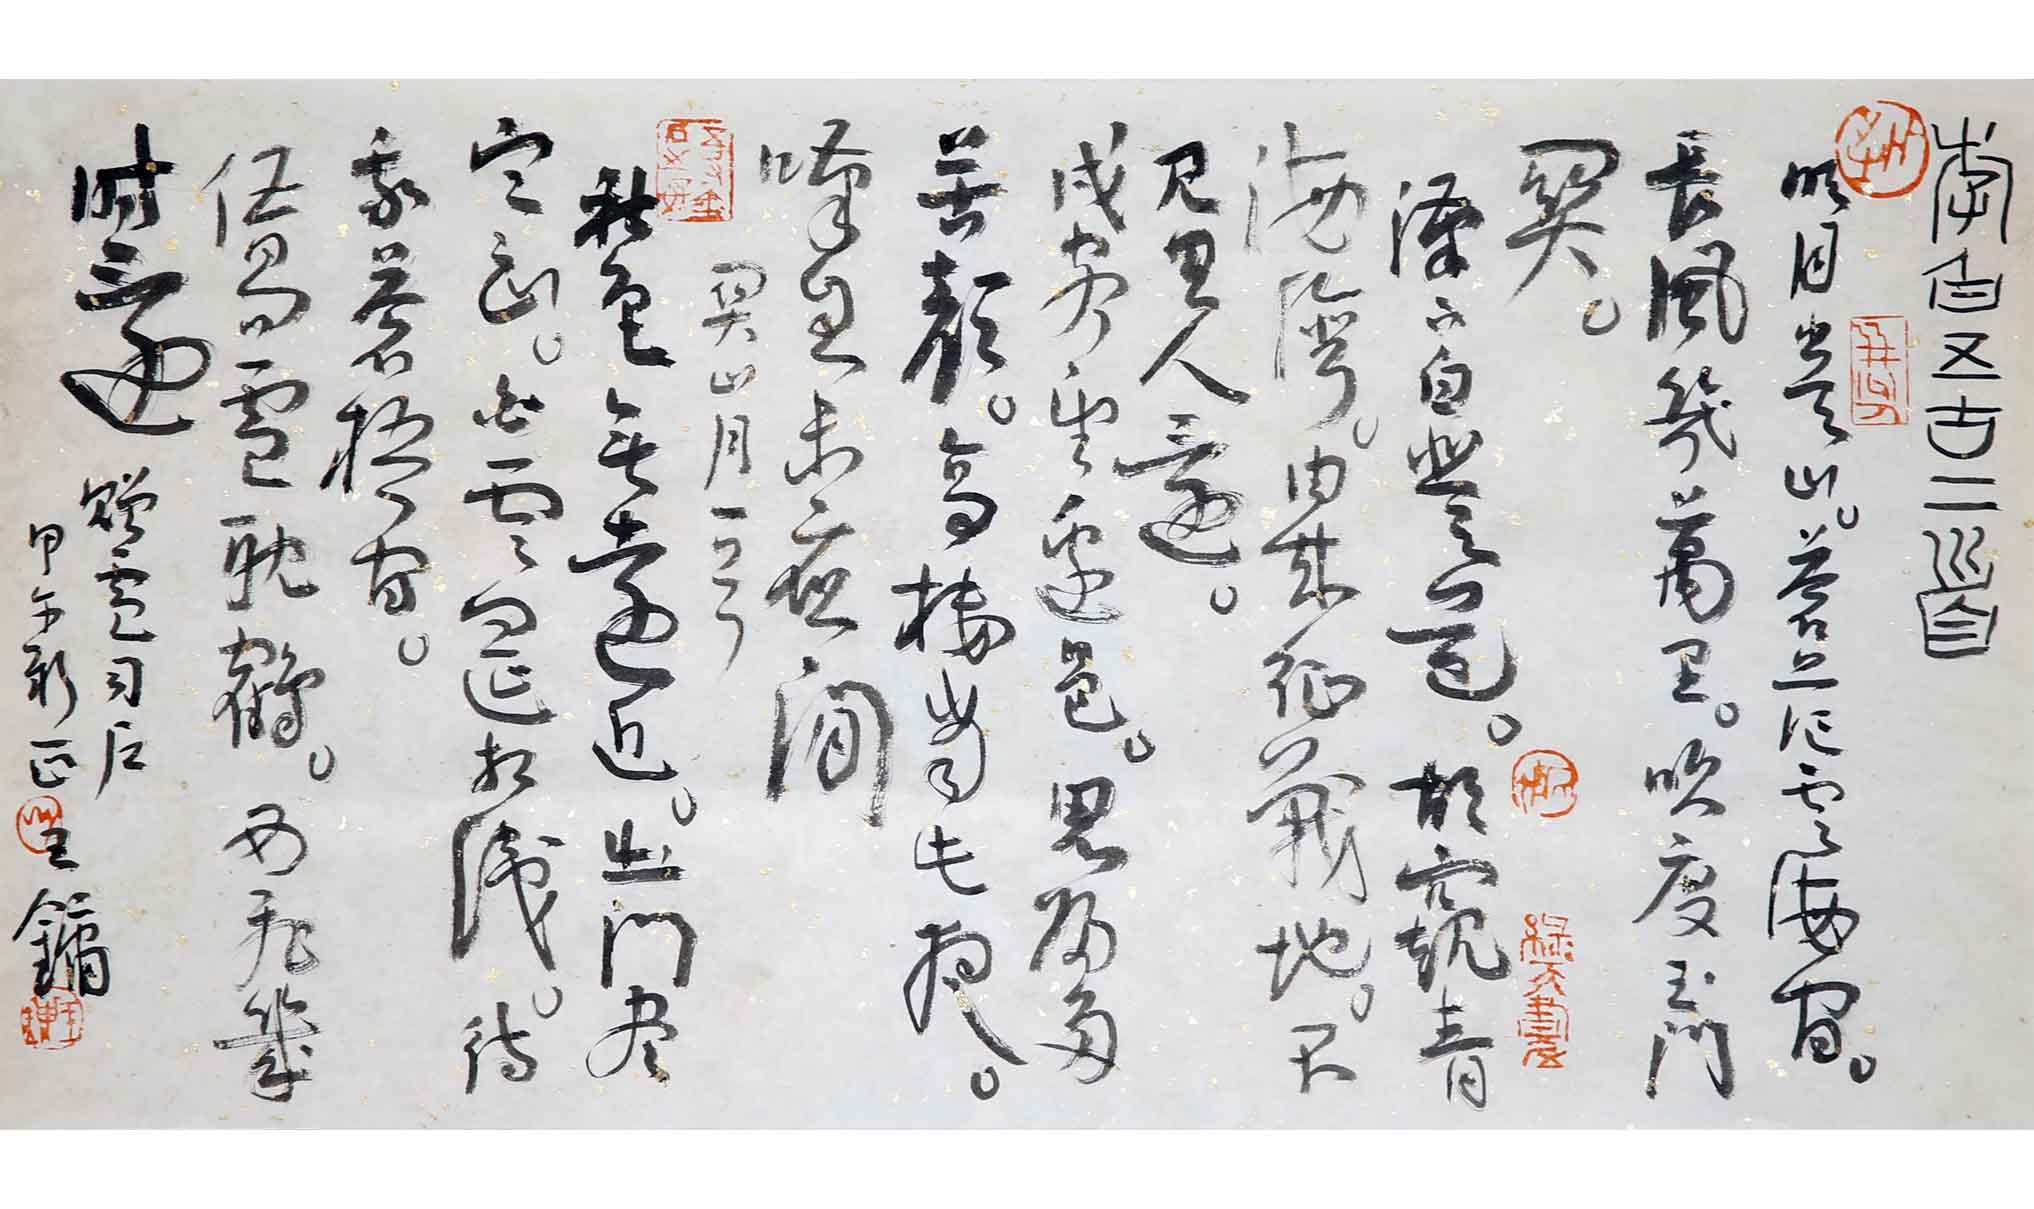 李白五古二首
明月出天山。蒼茫雲海間。
長風幾萬里。吹度玉門
關。
漢下白登道。胡窺青
海灣。由來征戰地。不
見有人還。
戍客望邊邑。思歸多
苦顏。高樓當此夜。
嘆息未應閒
關山月一首
秋色無遠近。出門尽
寒山。白雲遙相識。待
我蒼梧間。
借問盧耽鶴。西飛幾
時還
贈盧司户
甲午新正 王鏞